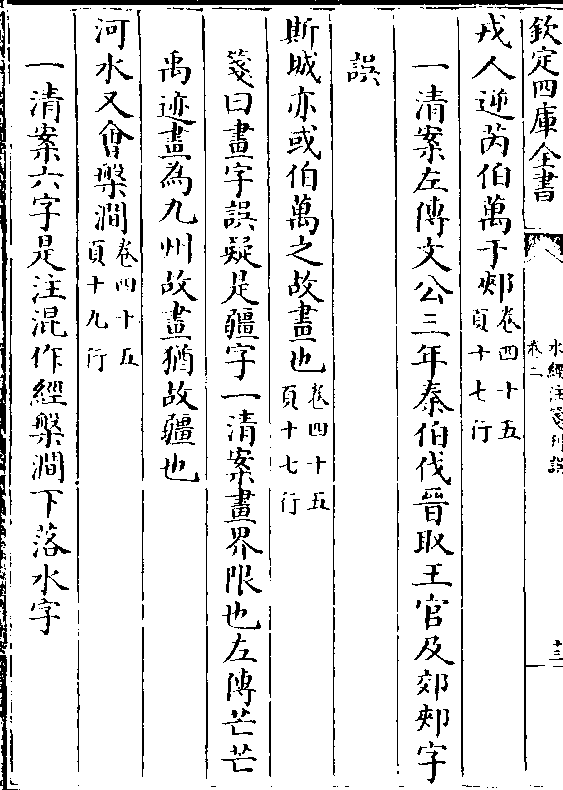 欽定四庫全書
水經注箋刊誤
卷二
十三
戎人逆芮伯萬于郟卷四十五頁十七行
一清案左傳文公三年秦伯伐晉取王官及郊郟字
誤
斯城亦或伯萬之故畫也卷四十五頁十七行
箋曰畫字誤疑是疆字一清案畫界限也左傳芒芒
禹迹畫為九州故畫猶故疆也
河水又會槃澗卷四十五頁十九行
一清案六字是注混作經槃澗下落水字